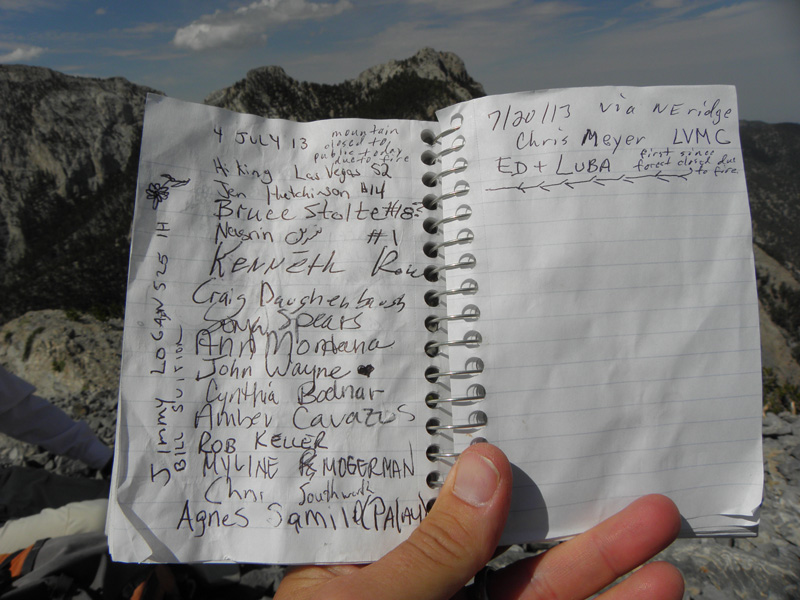 4 JULY 13 mountain
closed to
public today
due to fire
Hiking Las Vegas 52
Jen Hutchinson #14
Bruce Stolte #18
Nasrin نسرین #1
KENNETH
Craig Daughenbaugh
Sonja Spears
Ann Montana
John Wayne
Cynthia Bodnar
Amber Cavazos
ROB KELLER
MYLINE MOGERMAN
Chris Southwick
Agnes Samilo (PALAU)
Jimmy LOGAN 525 IH
BILL SUITION
7/20/13 via NE ridge
Chris Meyer LVMC
ED + LUBA first since
forest closed due
to fire